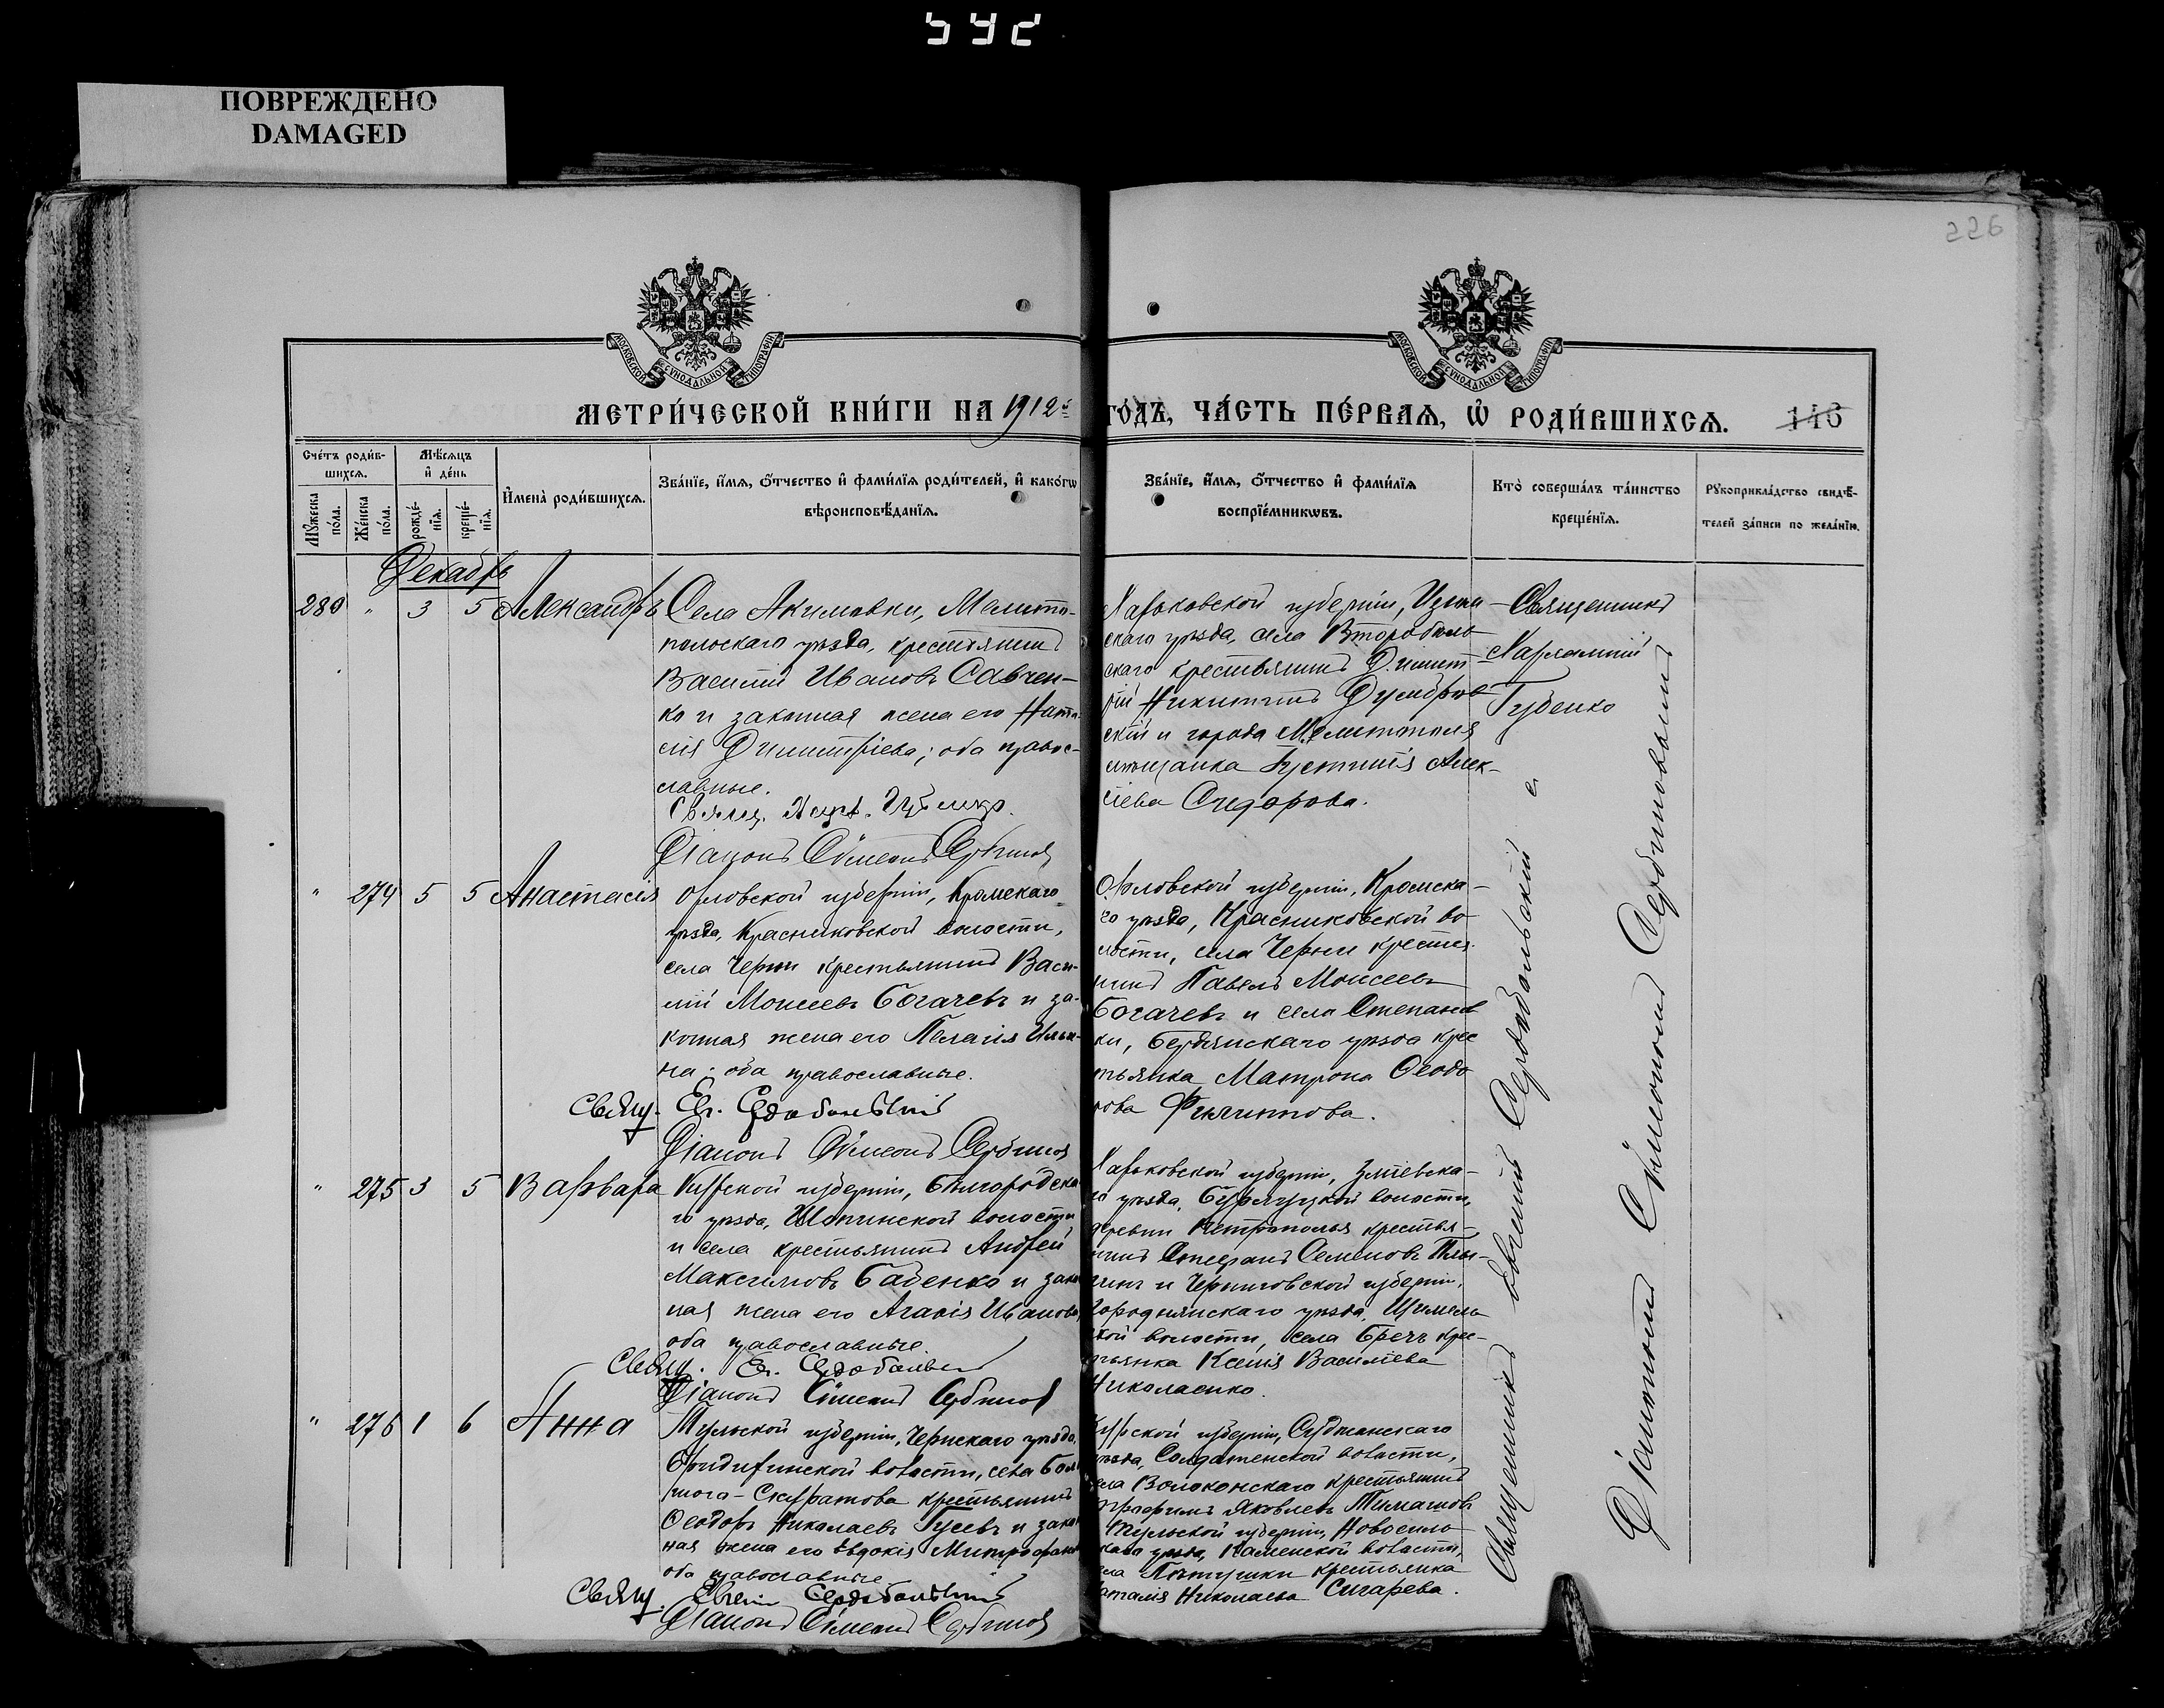 592
ПОВРЕЖДЕНО
DAMAGED
226
МОСКОВСКОЙ СѴНОДАЛЬНОЙ ТИПОГРАФІИ
МОСКОВСКОЙ СѴНОДАЛЬНОЙ ТИПОГРАФІИ
МЕТРИ́ЧЕСКОЙ КНИ́ГИ НА 1912й ГО́ДЪ, ЧА́СТЬ ПЕ́РВАѦ, Ѡ҆ РОДИ́ВШИХСѦ. 146
Сче́тъ роди́в-
шихсѧ.
Мѣ́сѧцъ
и҆ де́нь
Мꙋ́жеска
по́ла.
Же́нска
по́ла.
рожде́-
нїѧ.
креще́-
нїѧ.
И҆мена̀ роди́вшихсѧ.
Зва́нїе, и҆́мѧ, ѻ҆́тчество и҆ фами́лїѧ роди́телей, и҆ како́гѡ
вѣроисповѣ́данїѧ.
Зва́нїе, и҆́мѧ, ѻ҆́тчество и҆ фами́лїѧ
воспрїе́мникѡвъ.
Кто̀ соверша́лъ та́инство
креще́нїѧ.
Рꙋкоприкла́дство свидѣ́-
телей за́писи по жела́нїю.
Декабрь
280 " 3 5 Александръ
Села Акимовки, Мелито-
польскаго уѣзда, крестьянинъ
Василій Ивановъ Савчен-
ко и законная жена его Ната-
лія Димитріева; оба правос-
лавные.
Свящ. Харл. Губенко.
Діаконъ Сѵмеонъ Сербиновъ
Харьковской губерніи, Изюм-
скаго уѣзда, села
скаго крестьянинъ Димит-
рій Никитинъ
скій и города Мелитополя
мѣщанка Іустинія Алек-
сіева Сидорова.
Священникъ
Харлампій
Губенко
" 274 5 5 Анастасія
Орловской губерніи, Кромскаго
уѣзда, Красниковской волости,
села Черни крестьянинъ Васи-
лій Моисеевъ Богачевъ и за-
конная жена его Пелагія Ильи-
на; оба православные.
Свящ. Ев. Сердобольскій
Діаконъ Сѵмеонъ Сербиновъ
Орловской губерніи, Кромска-
го уѣзда, Красниковской во-
лости, села Черни крестья-
нинъ Павелъ Моисеевъ
Богачевъ и села Степанов
ки, Бердянскаго уѣзда крес
тьянка Матрона Ѳеодо
рова Филиппова.
" 275 3 5 Варвара
Курской губерніи, Бѣлгородска-
го уѣзда, Шопинской волости
и села крестьянинъ Андрей
Максимовъ Баденко и закон
ная жена его Агаѳія Иванова,
оба православные.
Свящ. Ев. Сердобольскій
Діаконъ Сѵмеонъ Сербиновъ
Харьковской губерніи, Зміевска-
го уѣзда, Бурлуцкой волости,
деревни Петрополья крестья-
нинъ Стефанъ Семеновъ
и Черниговской губерніи,
Городнянскаго уѣзда,
ской волости, села Бречъ крес-
тьянка Ксенія Василіева
Николаенко.
" 276 1 6 Анна
Тульской губерніи, Чернскаго уѣзда,
волости, села Боль
шого-Скуратова крестьянинъ
Ѳеодоръ Николаевъ Гусевъ и закон
ная жена его Евдокія Митрофан
оба православные
Свящ. Евгеній Сердобольскій
Діаконъ Сѵмеонъ Сербиновъ
Курской губерніи, Суджанскаго
уѣзда, Солдатской волости,
села Волоконскаго крестьянинъ
Яковлевъ Тимашовъ
Тульской губерніи, Новосиль
скаго уѣзда, Каменской волости,
села крестьянка
Наталія Николаева Сигарева.
Священникъ Евгений Сердобольский и
Діаконъ Сѵмеонъ Сербиновъ